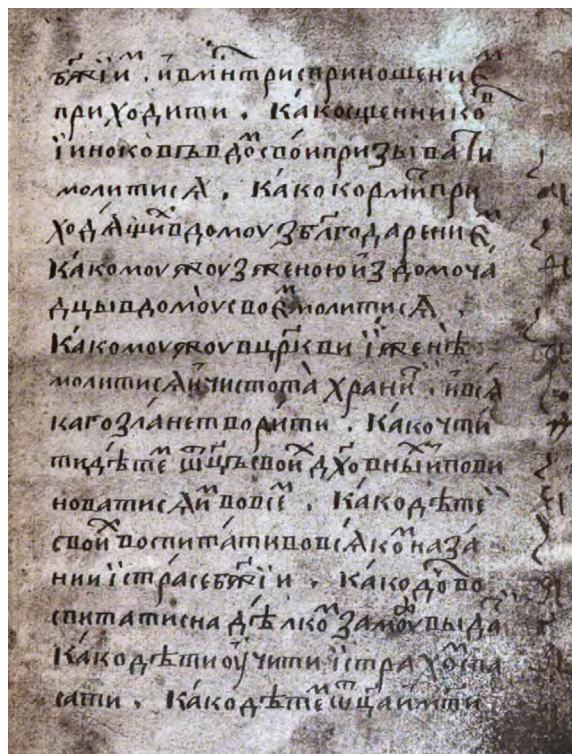 бж҃іиⷨ . и в мн҃трис приношениеⷨ
приходити . Како сщ҃енникоⷡ
і иноковъ в доⷨ свои призывати
молитися . Како кормити при
ходящиⷯ в дому з бл҃годарениеⷨ
Како мужу з женою и з домоча
дцы в дому своеⷨ молитися .
Како мужу в цр҃кви і женѣ
молитися и чистота хранити . и вся
каго зла не творити . Како чти
ти дѣтеⷨ ѿц҃ъ своиⷯ дх҃овныⷯ и пови
новатися иⷨ во всеⷨ . Како дѣтеи
своиⷯ воспитати во всякоⷨ наза
нии і страсе бж҃іи . Како
воспитати с надѣлкоⷨ замуⷤ выда
Како дѣти ѹчити і страхоⷨ спа
сати . Како дѣтеⷨ ѿц҃а и мт҃и